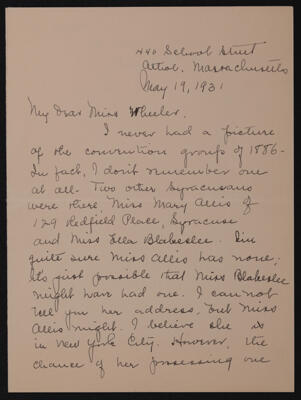 440 School Street
Athol, Massachusetts
May 19, 1931
My Dear Miss Wheeler,
I never had a picture
of the convention group of 1886-
In fact, I don't remember one
at all. Two other Syracusans
were there, Miss Mary Allis of
129 Redfield Place, Syracuse
and Miss Ella Blakeslee. I'm
quite sure Miss Allis has none;
its just possible that Miss Blakeslee
might have had one. I cannot
tell you her address, but Miss
Allis might. I believe she is
in New York City. However, the
chance of her possessing one